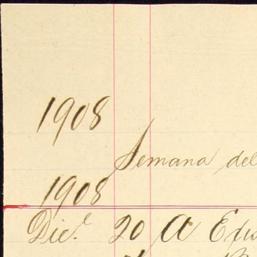 1908
Semana del
1908
Dic.e 20 A